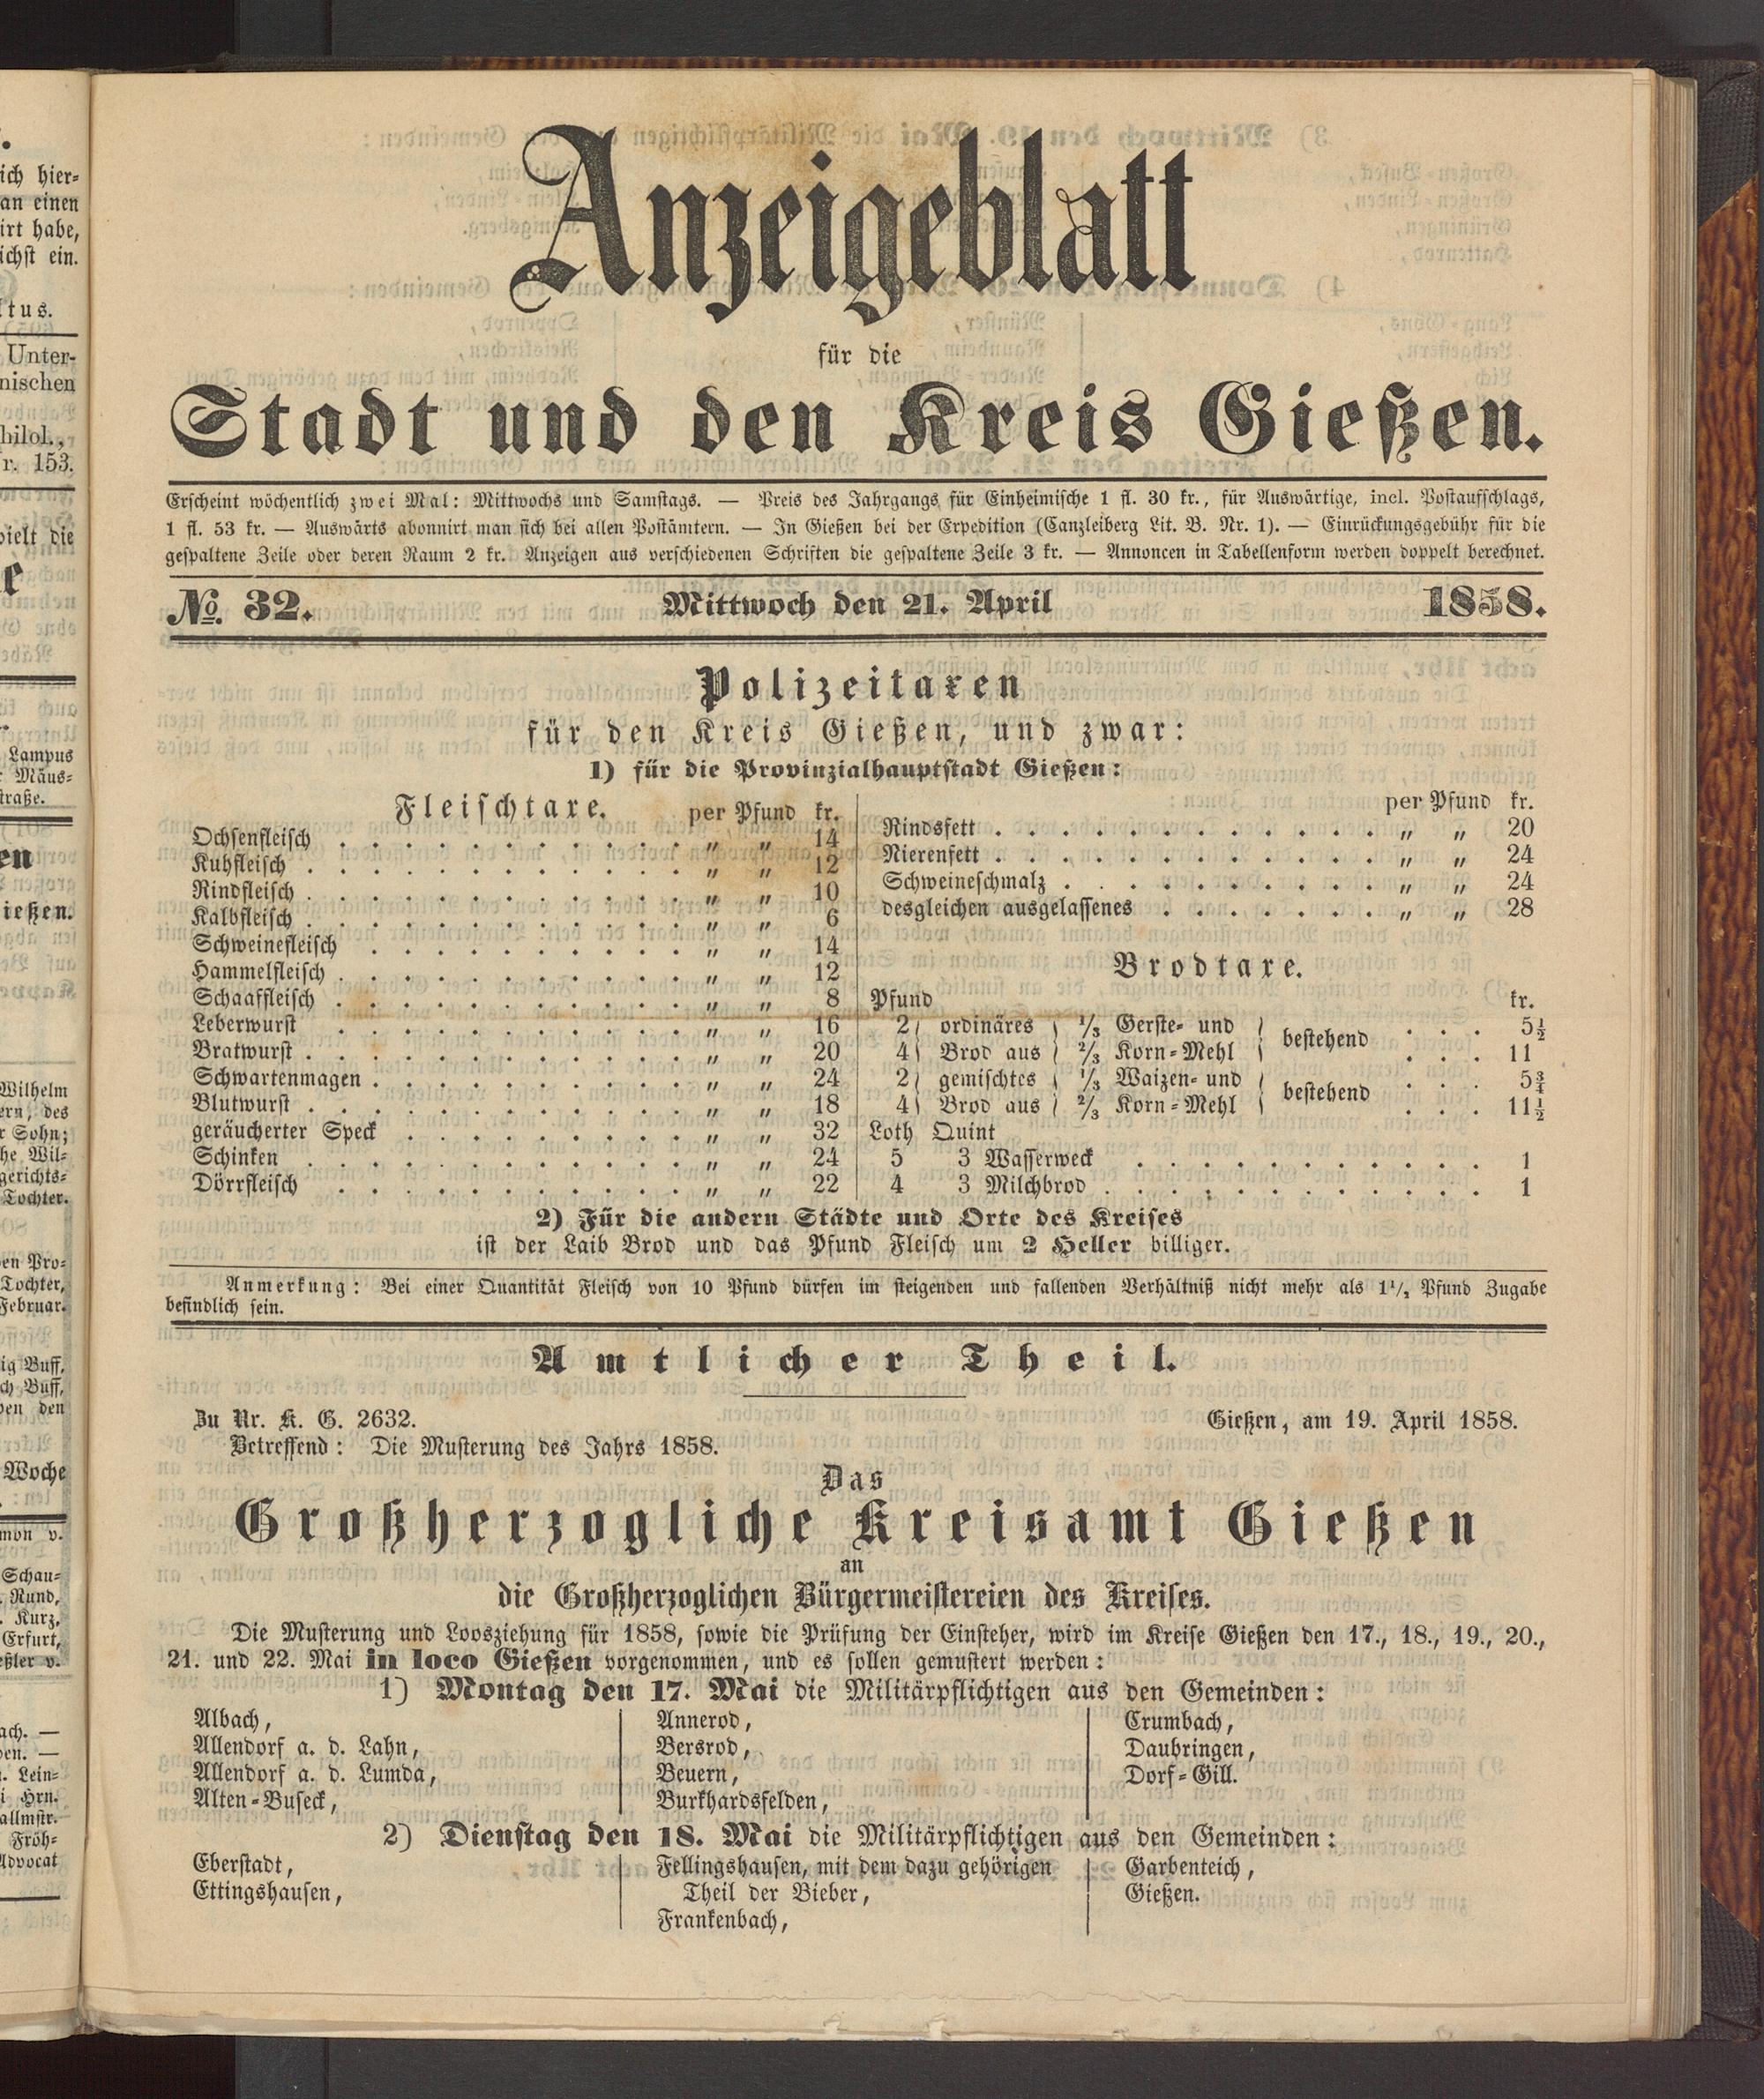 Anzeigeblatt
für die
Stadt und den Kreis Gießen.
Erscheint wöchentlich zwei Mal: Mittwochs und Samstags. — Preis des Jahrgangs für Einheimische 1 fl. 30 kr., für Auswärtige, incl. Postaufschlags,
1 fl. 53 kr. — Auswärts abonnirt man sich bei allen Postämtern. — In Gießen bei der Expedition (Canzleiberg Lit. B. Nr. 1). — Einrückungsgebühr für die
gespaltene Zeile oder deren Raum 2 kr. Anzeigen aus verschiedenen Schriften die gespaltene Zeile 3 kr. — Annoncen in Tabellenform werden doppelt berechnet.
No. 32. Mittwoch den 21. April 1858.
Polizeitaxen
für den Kreis Gießen, und zwar:
1) für die Provinzialhauptstadt Gießen:
Fleischtaxe. per Pfund kr.
Ochsenfleisch . . . „ „ 14
Kuhfleisch . . . „ „ 12
Rindfleisch . . . „ „ 10
Kalbfleisch . . . „ „ 6
Schweinefleisch . . . „ „ 14
Hammelfleisch . . . „ „ 12
Schaaffleisch . . . „ „ 8
Leberwurst . . . „ „ 16
Bratwurst . . . „ „ 20
Schwartenmagen . . . „ „ 24
Blutwurst . . . „ „ 18
geräucherter Speck . . . „ „ 32
Schinken . . . „ „ 24
Dörrfleisch . . . „ „ 22
per Pfund kr.
Rindsfett . . . „ „ 20
Nierenfett . . . „ „ 24
Schweineschmalz . . . „ „ 24
desgleichen ausgelassenes . . . „ „ 28
Brodtaxe.
Pfund kr.
2 } ordinäres } 1/3 Gerste- und } bestehend . . . 5½
4 } Brod aus } 2/3 Korn-Mehl } . . . 11
2 } gemischtes } 1/3 Waizen- und } bestehend . . . 5¾
4 } Brod aus } 2/3 Korn-Mehl } . . . 11½
Loth Quint
5 3 Wasserweck . . . 1
4 3 Milchbrod . . . 1
2) Für die andern Städte und Orte des Kreises
ist der Laib Brod und das Pfund Fleisch um 2 Heller billiger.
Anmerkung: Bei einer Quantität Fleisch von 10 Pfund dürfen im steigenden und fallenden Verhältniß nicht mehr als 1½ Pfund Zugabe
befindlich sein.
Amtlicher Theil.
Zu Nr. K. G. 2632. Gießen, am 19. April 1858.
Betreffend: Die Musterung des Jahrs 1858.
Das
Großherzogliche Kreisamt Gießen
an
die Großherzoglichen Bürgermeistereien des Kreises.
Die Musterung und Loosziehung für 1858, sowie die Prüfung der Einsteher, wird im Kreise Gießen den 17., 18., 19., 20.,
21. und 22. Mai in loco Gießen vorgenommen, und es sollen gemustert werden:
1) Montag den 17. Mai die Militärpflichtigen aus den Gemeinden:
Albach,
Allendorf a. d. Lahn,
Allendorf a. d. Lumda,
Alten-Buseck,
Annerod,
Bersrod,
Beuern,
Burkhardsfelden,
Crumbach,
Daubringen,
Dorf-Gill.
2) Dienstag den 18. Mai die Militärpflichtigen aus den Gemeinden:
Eberstadt,
Ettingshausen,
Fellingshausen, mit dem dazu gehörigen
Theil der Bieber,
Frankenbach,
Garbenteich,
Gießen.